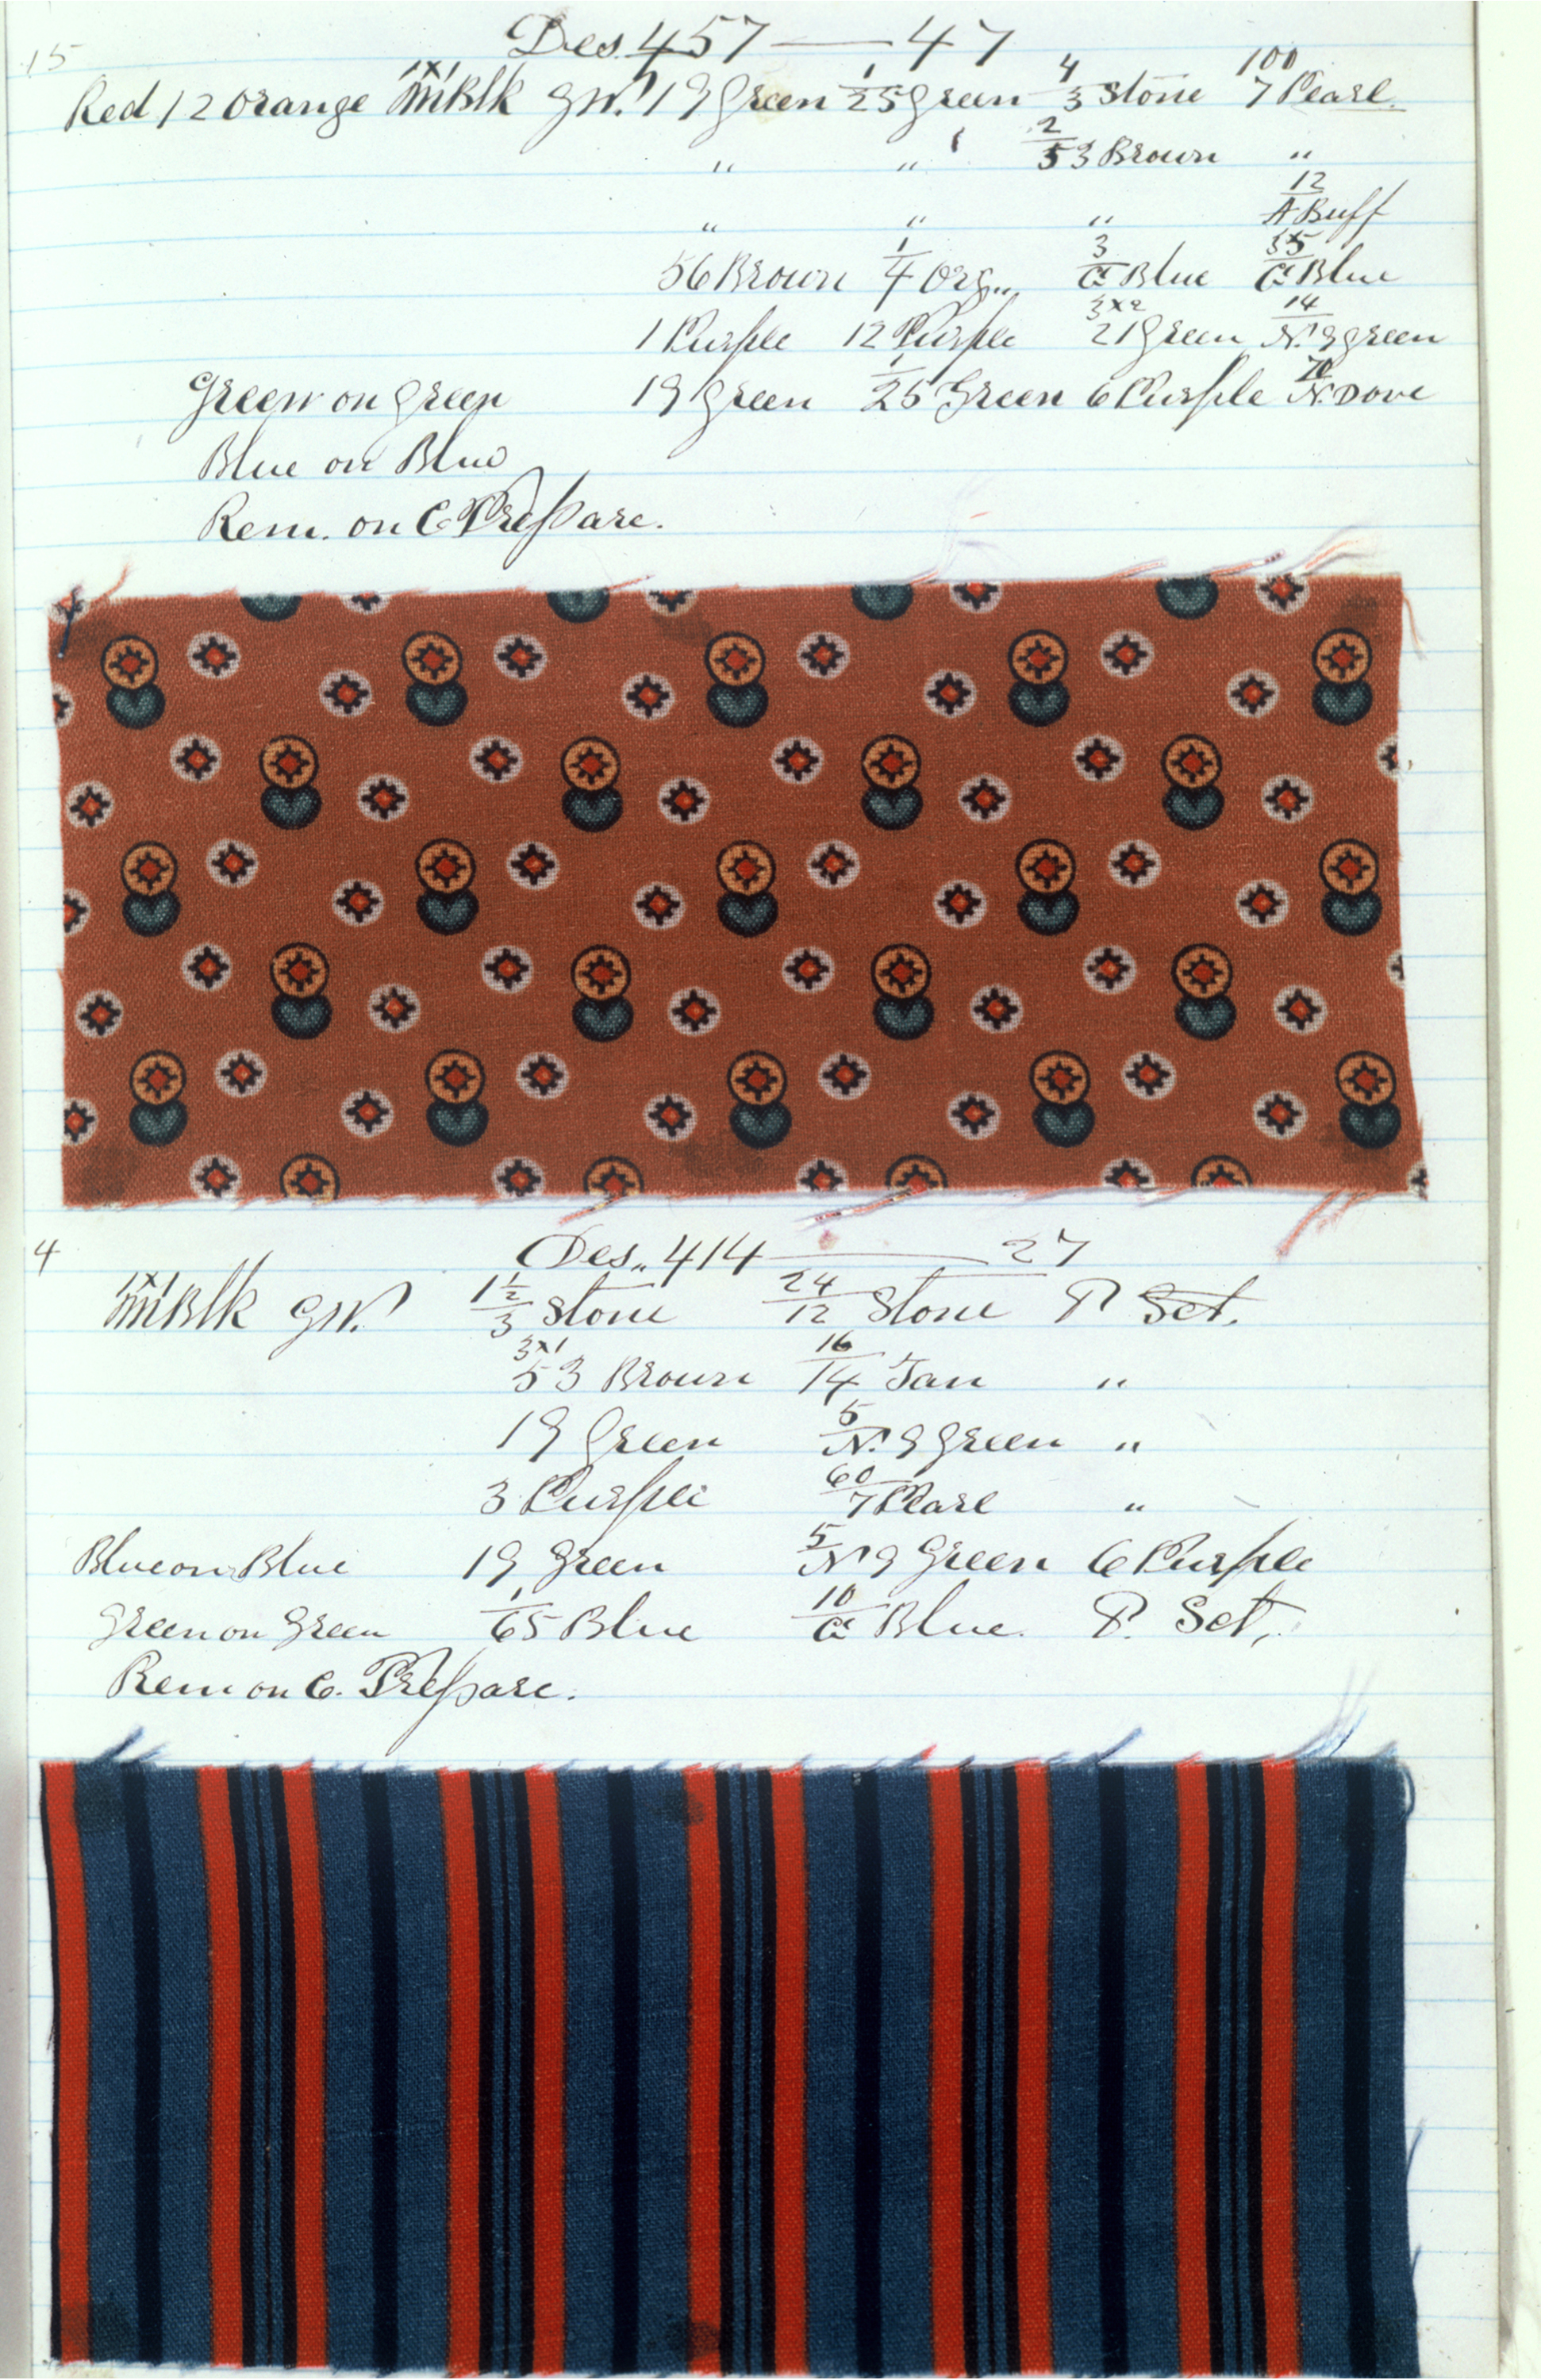 Des. 457 — 47
15
Red 12 Orange 1x1 Blk 19 Green 1/25 Green 4/3 Stone 100/7 Pearl.
" " 2/53 Brown "
" " " 12/A Buff
56 Brown 1/4 Org.. 3/C Blue 35/C Blue
1 Purple 12 Purple 3x2/21 Green 14/N. 9 green
Green on green 19 green 1/25 Green 6 Purple 70/N. Dove
Blue on Blue
Rem. on C Prepare.
4
Des.. 414 — 27
1x1 Blk 1 1/2/3 Stone 24/12 Stone P Set.
3x1/53 Brown 16/14 Tan "
19 Green 5/N. 9 Green "
3 Purple 60/7 Pearl "
Blue on Blue 19 Green 5/N 9 Green 6 Purple
Green on Green 1/65 Blue 10/C Blue. P. Set,
Rem on C. Prepare.